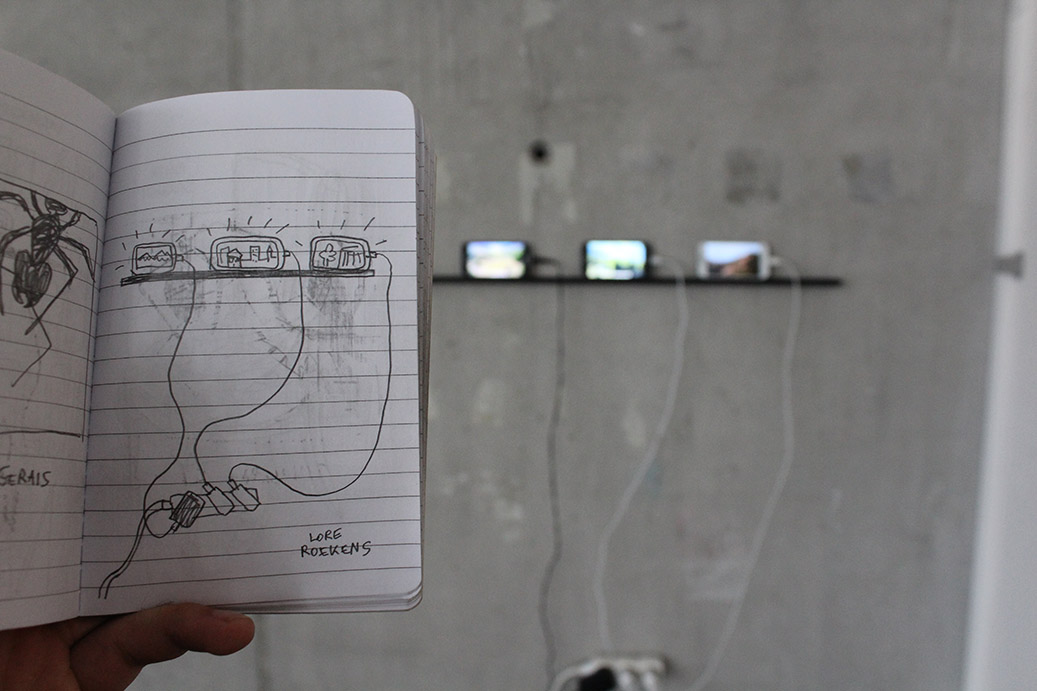 GERAIS
LORE
ROEKENS